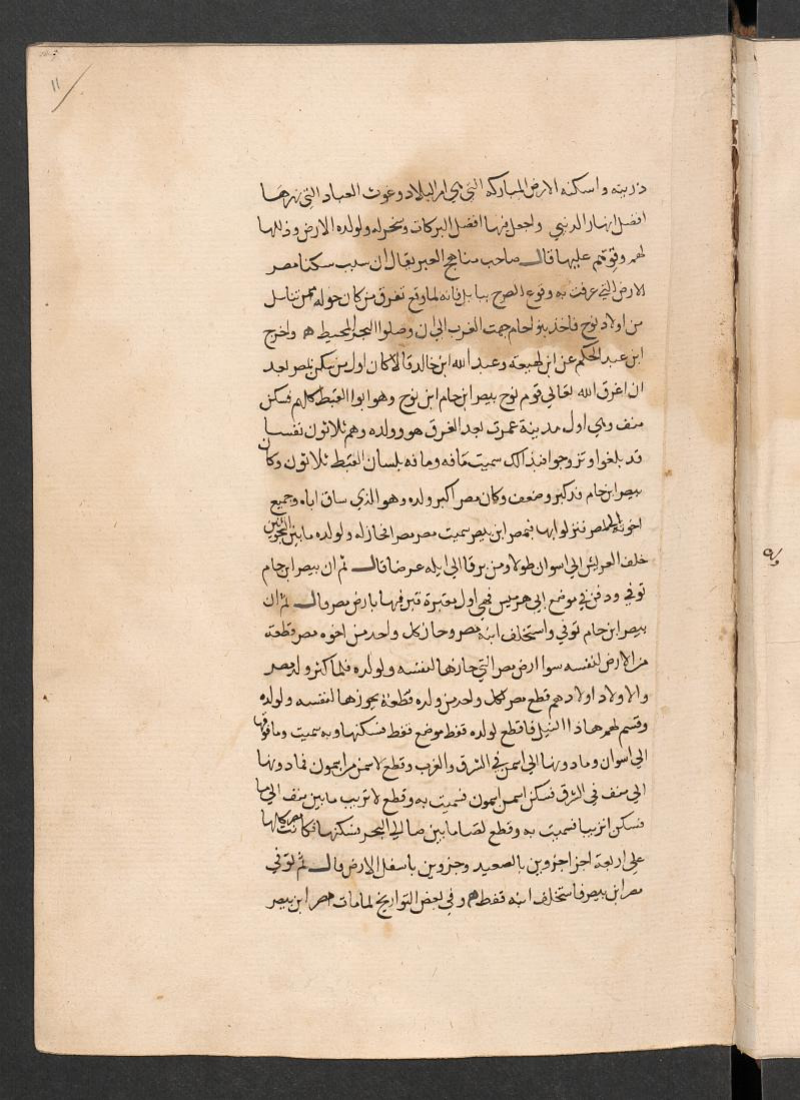 ١١
ذريته واسكنه الارض المباركه التي هي ام البلاد وغوث العباد التي نهرها
افضل انهار الدنيي واجعل فيها افضل البركات وسخر له ولولده الارض وذللها
لهم وقوهم عليها قال صاحب مناهج العبر يقال ان سبب سكنا مصر
الارض التي عرفت به وقوع الصرح ببابل فانه لما وقع تفرق من كان حوله ممن تناسل
من اولاد نوح فاخذ بنو لحام جهت الغرب الي ان وصلوا البحر المحيط ه واخرج
ابن عبد الحكم عن ابن لهيعه وعبد الله ابن خالد قالا كان اول من سكن بمصر بعد
ان اغرق الله تعالي قوم نوح بيصر ابن حام ابن نوح وهو ابوا القبط كلهم فسكن
منف وهي اول مدينة عمرت بعد الغرق هو وولده وهم ثلاثون نفسا
قد بلغوا وتزوجوا فبذالك سميت مافه ومافه بلسان القبط ثلاثون وكان
بيصر ابن حام قد كبر وضعف وكان مصر اكبر ولده وهو الذي ساق اباه وجميع
اخوته الي مصر فنزلوا بها فبمصر ابن بيصر سميت مصر مصر انحاز له ولولده ما بين الشجرتين
خلف العريش الي اسوان طولا ومن برقا الي ايله عرضا قال ثم ان بيصر ابن حام
توفي ودفن في موضع ابي هرميس فهي اول مقبرة قبر فيها بارض مصر قال ثم ان
بيصر ابن حام توفي واستخلف ابنه مصر وحاز كل واحد من اخوه مصر قطعه
من الارض لنفسه سوا ارض مصر التي حازها لنفسه ولولده فلما كثر ولد مصر
والاولاد اولادهم قطع مصر لكل واحد من ولده قطعة يحوزها لنفسه ولولده
وقسم لهم هاذا النيل فاقطع لولده قفط موضع قفط فسكنها وبه سميت وما فوقها
الي اسوان وما دونها الي اشمن في الشرق والغرب وقطع لاشمن من اشمون فما دونها
الي منف في الشرق فسكن اشمن اشمون فسميت به وقطع لاتريب ما بين منف الي صا
فسكن اتريبا فسميت به وقطع لصا ما بين صا الي البحر فسكنها فكانت مصر كلها
علي اربعة اجزا جزوين بالصعيد وجزوين باسفل الارض قال ثم توفي
مصر ابن بيصر فاستخلف ابنه قفط ه وفي بعض التواريخ لما مات مصر ابن بيصر